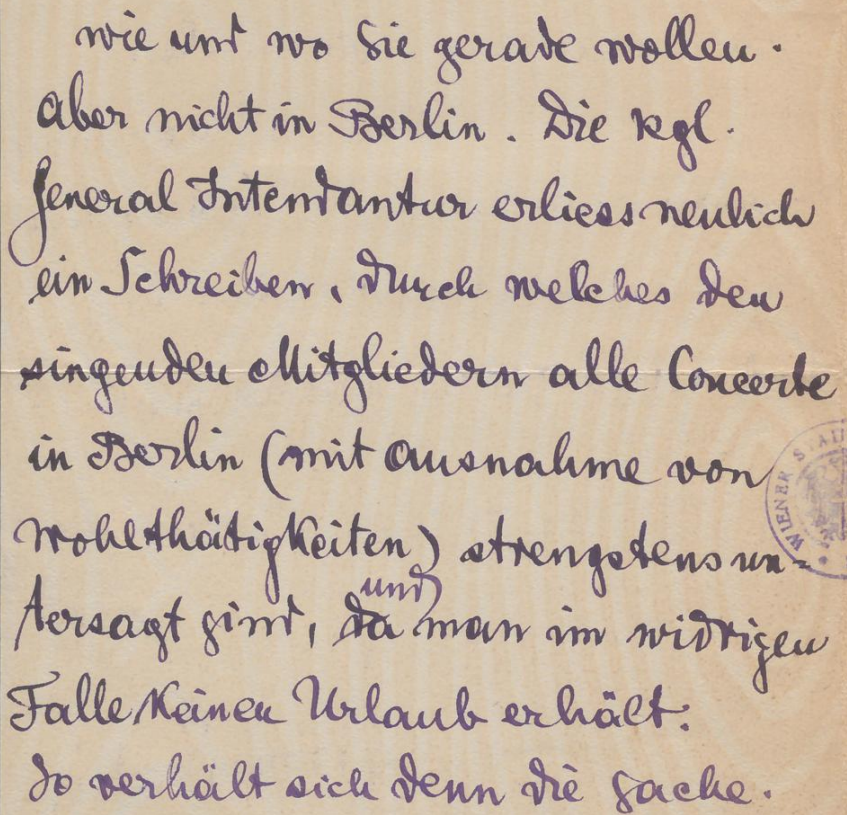 wie und wo Sie gerade wollen.
Aber nicht in Berlin. Die kgl.
General Intendantur erliess neulich
ein Schreiben, durch welches den
singenden Mitgliedern alle Concerte
in Berlin (mit Ausnahme von
WIENER STAD
Wohlthätigkeiten) strengstens un-
und
tersagt sind, da man im widrigen
Falle keinen Urlaub erhält.
So verhält sich denn die Sache.